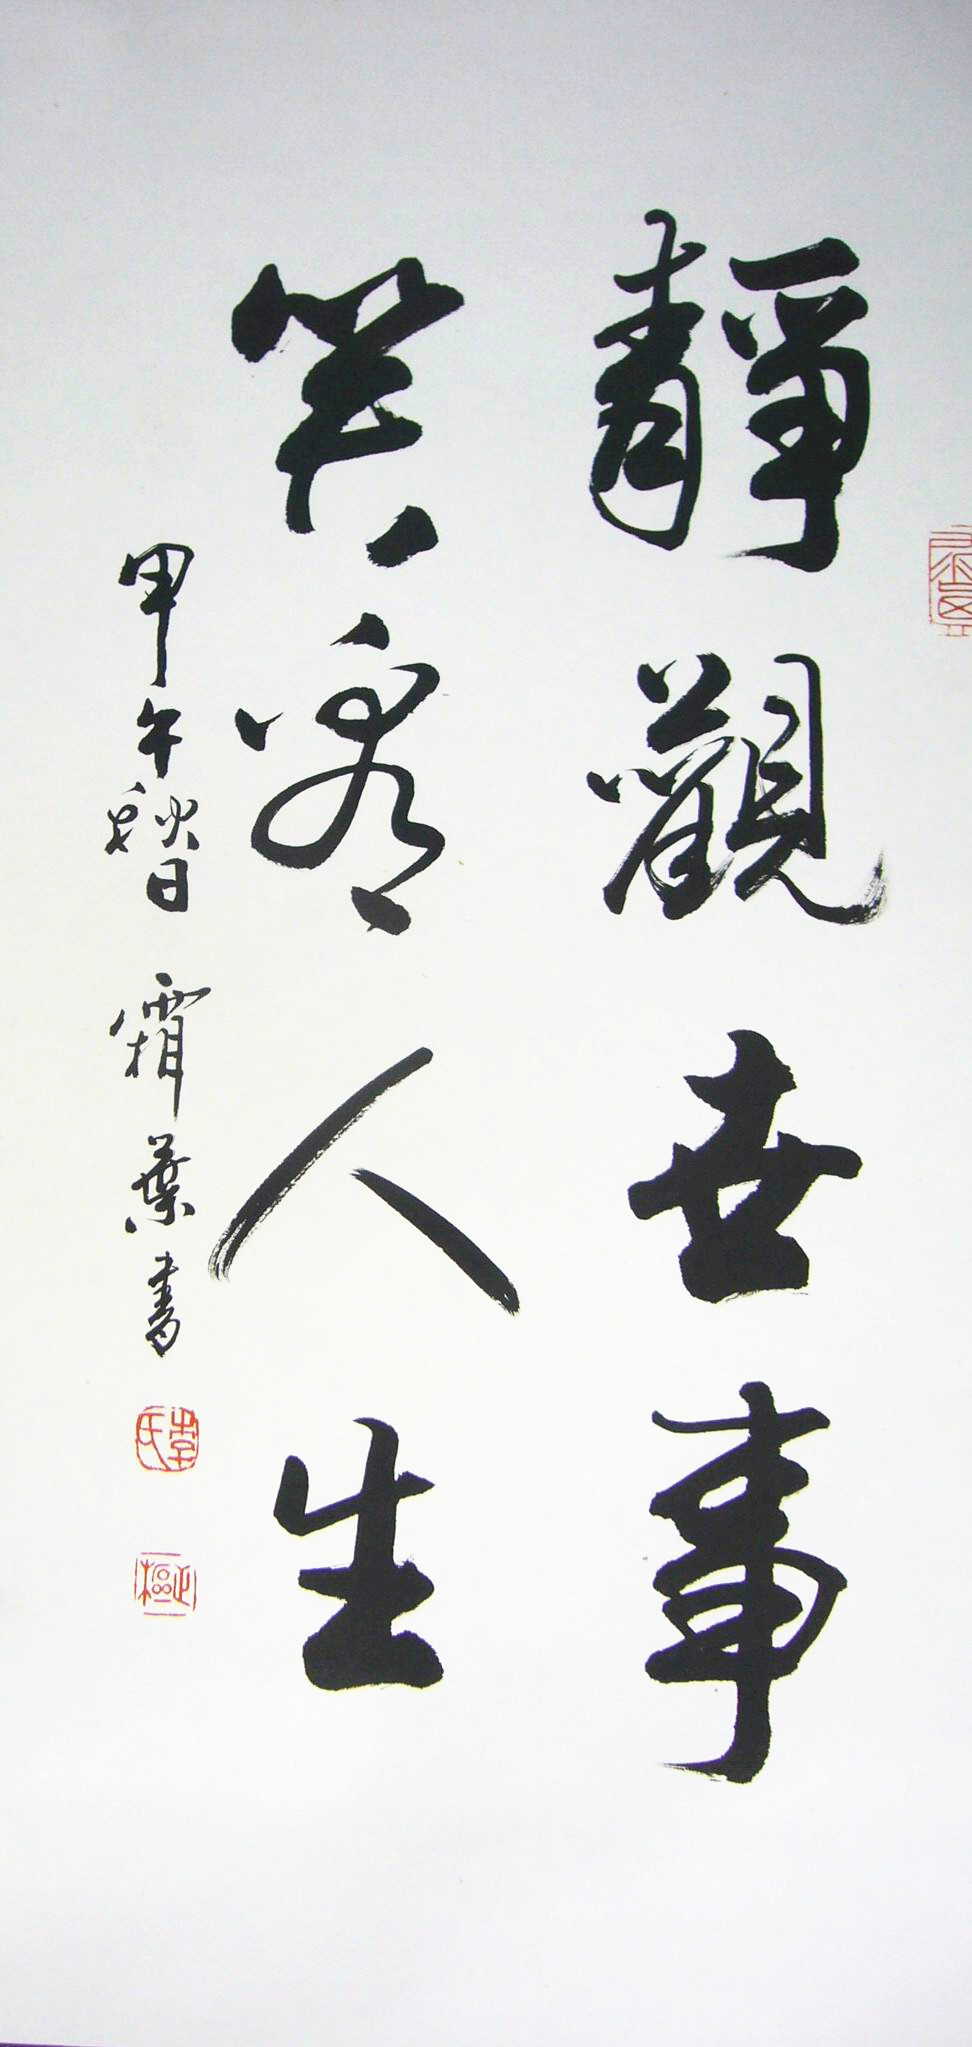 靜觀世事
笑人生
甲午秋日 霜葉書